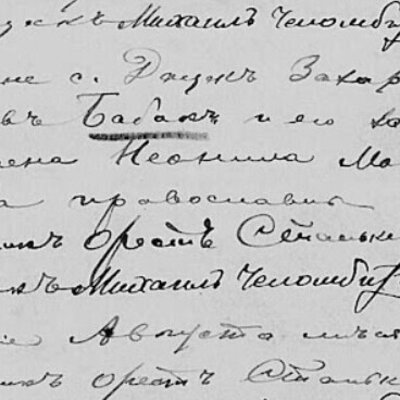 Михаилъ Челомби
не с. Захар
въ Бабакъ и его за
жена Неонила Ма
а православн
икъ Орестъ Стань
къ Михаилъ Челомби
е Августа мѣся
икъ Орестъ Стань